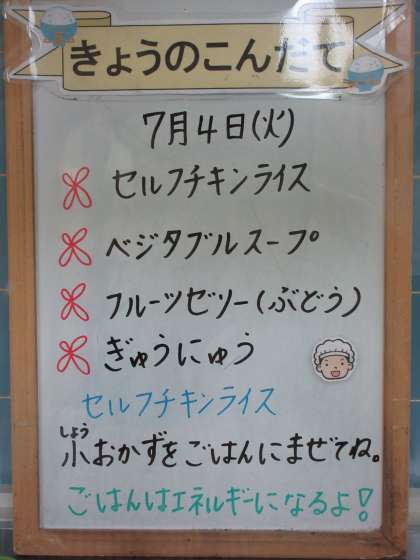 きょうのこんだて
7月4日(火)
セルフチキンライス
ベジタブルスープ
フルーツゼリー(ぶどう)
ぎゅうにゅう
セルフチキンライス
しょう
小おかずをごはんにまぜてね。
ごはんはエネルギーになるよ!